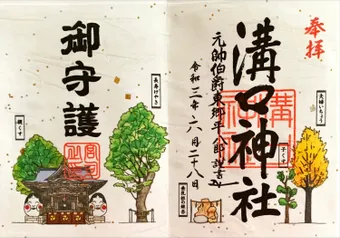 奉拝
溝口神社
元帥伯爵東郷平八郎謹書
令和三年六月二十八日
御守護
親くす
子くす